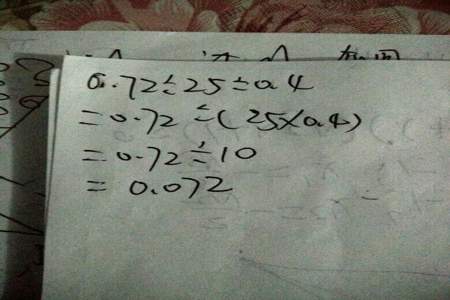 0.72÷25÷0.4
=0.72÷(25×0.4)
=0.72÷10
= 0.072